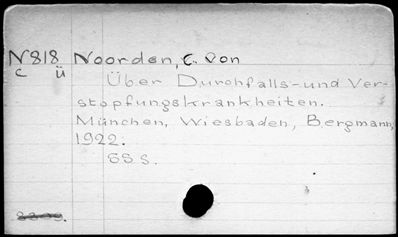 N818 Noorden, C. von
c ü
Über Durchfalls- und Ver-
stopfungskrankheiten.
München, Wiesbaden, Bergmann,
1922.
S.